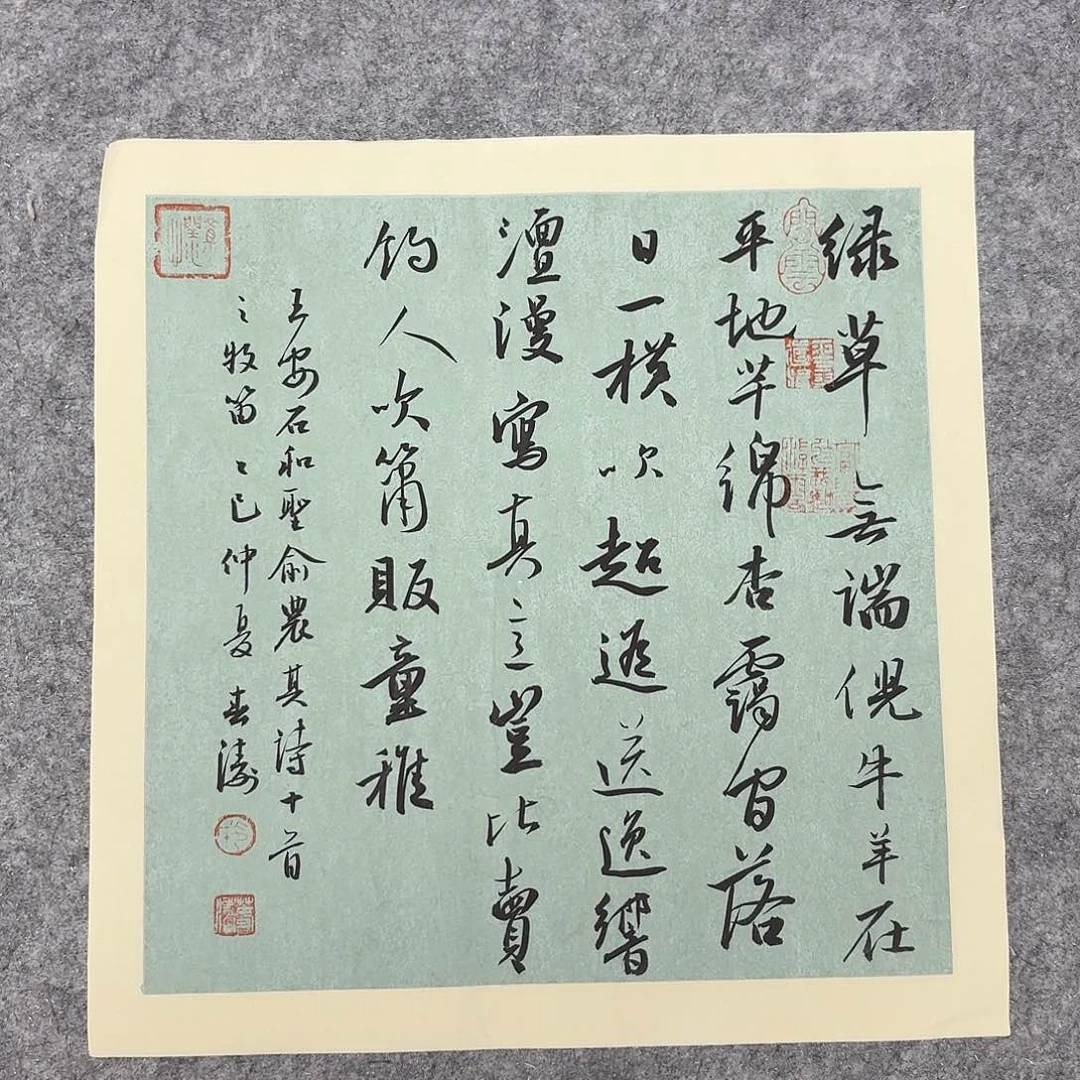 緑草無端倪牛羊在
平地芊綿杳靄間落
日一橫吹超遥送逸響
澶漫寫真意豈比賣
人吹簫販童稚
王安石和聖俞農具詩十首
之牧笛乙巳仲夏春濤